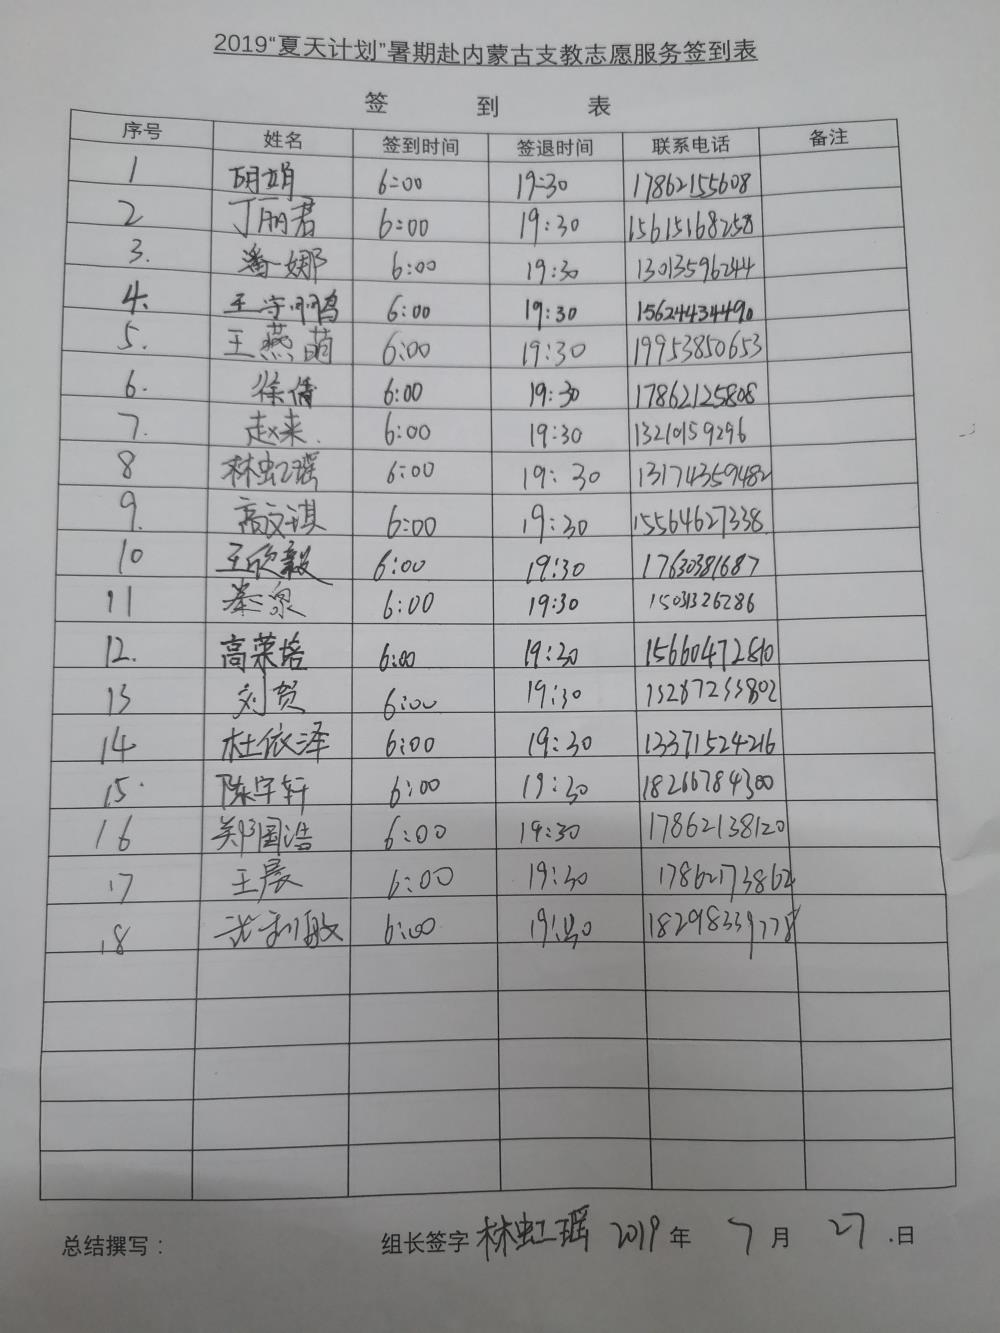 2019“夏天计划”暑期赴内蒙古支教志愿服务签到表
签 到 表
序号 姓名 签到时间 签退时间 联系电话 备注
1 胡娟 6:00 19:30 17862155608
2 丁丽君 6:00 19:30 15615168258
3. 潘一娜 6:00 19:30 13013596244
4. 王守鹏 6:00 19:30 15624434490
5. 王燕萌 6:00 19:30 19953850653
6. 徐倩 6:00 19:30 17862125808
7. 赵来. 6:00 19:30 13210159296
8 林虹瑶 6:00 19:30 13174359482
9. 高文琪 6:00 19:30 15564627338
10 王欣毅 6:00 19:30 17630381687
11 泉 6:00 19:30 15031326286
12. 高荣培 6:00 19:30 15660472810
13 刘贺 6:00 19:30 13287233802
14 杜依泽 6:00 19:30 13371524216
15. 陈宇轩 6:00 19:30 18266784300
16 郑国浩 6:00 19:30 17862138120
17 王晨 6:00 19:30 17862173862
18 利敏 6:00 19:30 18298339778
总结撰写： 组长签字 林虹瑶 2019年 7月 27.日